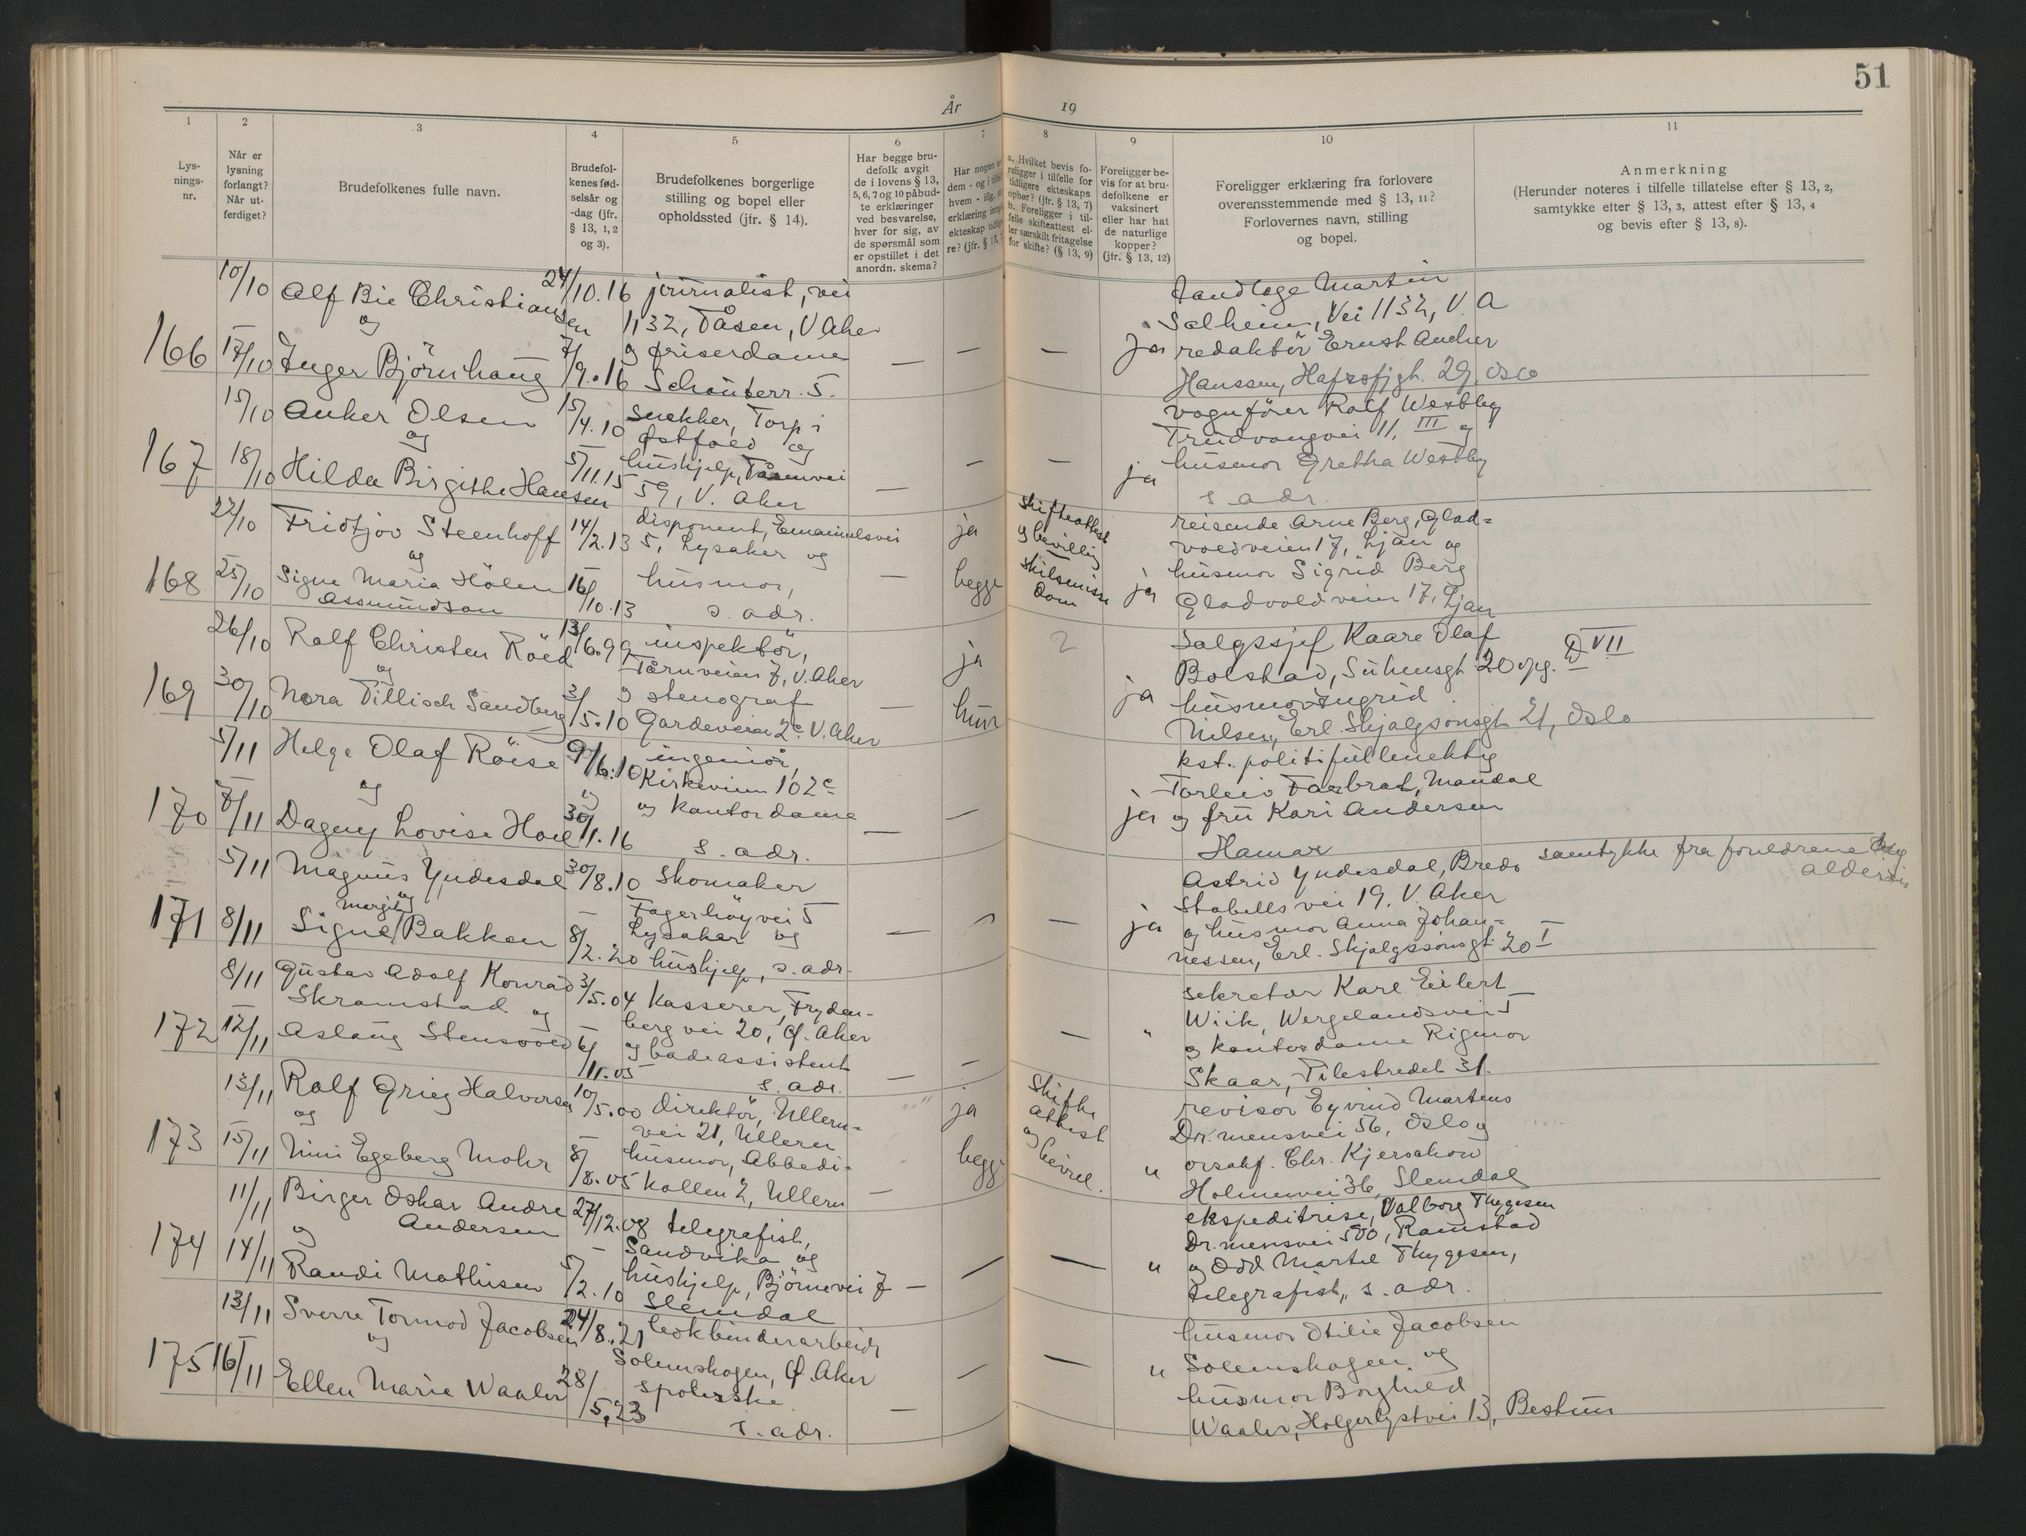 51
År 19
1 2 3 4 5 6 7 8 9 10 11
Lys-
nings-
nr.
Når er
lysning
forlangt?
Når ut-
ferdiget?
Brudefolkenes fulle navn.
Brudefol-
kenes fød-
selsår og
-dag (jfr.
§ 13, 1, 2
og 3).
Brudefolkenes borgerlige
stilling og bopel eller
opholdssted (jfr. § 14).
Har begge bru-
defolk avgit
de i lovens § 13,
5, 6, 7 og 10 påbud-
te erklæringer
ved besvarelse,
hver for sig, av
de spørsmål som
er opstillet i det
anordn. skema?
Har nogen av
dem - og i
hvem - 
erklæring
ekteskap tidlige-
re? (jfr. § 13, 7
a. Hvilket bevis fo-
religger i tilfelle for
tidligere ekteskaps
ophør? (jfr. § 13, 7)
b. Foreligger i til-
felle skifteattest el-
ler særskilt fritagelse
for skifte? (§ 13, 9)
Foreligger be-
vis for at bru-
defolkene er
vaksinert
eller har hat
de naturlige
kopper?
(jfr. § 13, 12)
Foreligger erklæring fra forlovere
overensstemmende med § 13, 11?
Forlovernes navn, stilling
og bopel.
Anmerkning
(Herunder noteres i tilfelle tillatelse efter § 13, 2,
samtykke efter § 13, 3, attest efter § 13, 4
og bevis efter § 13, 8).
166
10/10 Alf Bie Christiansen 24/10.16 journalist, vei
og 1132, Tåsen, V Aker
17/10 Inger Björnhaug 7/9.16 og friserdame
Schouterr. 5.
— — — ja
tandlæge Martin
Solheim, Vei 1132, V. A
redaktör Ernst Ancher
Hanssen, Hafrsfjgt. 29, Oslo
167
15/10 Anker Olsen 15/4.10 snekker, Torp i
og Østfold og
18/10 Hilda Birgithe Hansen 5/11.15 hushjelp, Tåsenvei
59, V. Aker
— — — ja
vognfører Rolf Westbye
Trudvangvei 11, III og
husmor Gretha Westby
s adr.
168
22/10 Fridtjov Steenhoff 14/2.13 disponent, Emanuelsvei
og 5, Lysaker og
25/10 Signe Maria Hölen 16/10.13 husmor,
Assmundson s. adr.
— ja
begge
skifteattest
og bevilling
skilsmisse
dom
ja
reisende Arne Berg, Glad-
voldveien 17, Ljan og
husmor Sigrid Berg
Gladvoldveien 17, Ljan
169
26/10 Rolf Christen Röed 13/6.99 inspektör,
og Tårnveien 7, V. Aker
30/10 Nora Tillisch Sandberg 3/5.10 og stenograf
Gardeveien 2c V. Aker
— ja
hun
2
ja
Salgssjef Kaare Olaf
Bolstad, Suhmsgt 20 opg. D VII
husmor Ingrid
Nilsen, Erl. Skjalgsonsgt 21, Oslo
170
5/11 Helge Olaf Röise 9/6.10 ingeniör,
og Kirkeveien 102c
8/11 Dagny Lovise Hoel 30/11.16 og kontordame
s. adr.
— — ja
kst. politifullmektig
Torleiv Farbrot, Mandal
og fru Kari Andersen
Hamar
171
5/11 Magnus Yndesdal 30/8.10 Skomaker
og Fagerhöyvei 5
8/11 Signe Margit Bakken 8/2.20 Lysaker og
hushjelp, s. adr.
— — ja
Astrid Yndesdal, Bredo
Stabells vei 19, V. Aker
og husmor Anna Johan-
nessen, Erl. Skjalgssonsgt 20 I
samtykke fra foreldrene
172
8/11 Gustav Adolf Konrad 3/5.04 Kasserer, Fryden-
Skramstad og berg vei 20, Ø. Aker
12/11 Aslaug Stensvold 6/11.05 og badeassistent
s. adr.
— — — "
sekretær Karl Eilert
Wiik, Wergelandsvei 5
og kontordame Rigmor
Skaar, Pilestredet 31.
173
13/11 Rolf Grieg Halvorsen 10/5.00 direktör, Ullern-
og vei 21, Ullern
15/11 Nini Egeberg Mohr 8/8.05 husmor, Abbedi-
kollen 2, Ullern
— ja
begge
Skifte
attest
og bevill.
"
revisor Eyvind Martens
Drammensvei 56, Oslo og
orsakf. Chr. Kjerschow
Holmenvei 36, Slemdal
174
11/11 Birger Oskar Andre 27/12.08 telegrafist,
og Andersen Sandvika og
14/11 Randi Mathisen 5/2.10 hushjelp, Björnevei 7
Slemdal
— — — "
ekspeditrise, Valborg Thygesen
Dr.mensvei 500, Ramstad
og Odd Martel Thygesen,
telegrafist, s. adr.
175
13/11 Sverre Tormod Jacobsen 24/8.21 bokbinderarbeider
og Solemskogen, Ø. Aker
16/11 Ellen Marie Waaler 28/5.23 spolerske
s. adr.
— — — "
husmor Otilie Jacobsen
Solemskogen og
husmor Borghild
Waaler, Holgerlystvei 13, Bestum